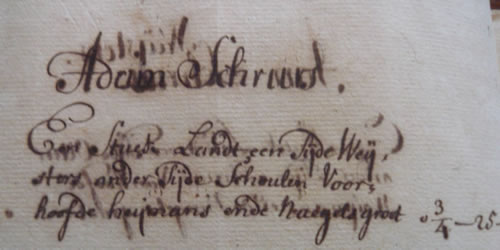 Adam Schruns.
Een Stuck Landt een Sijde Weij,
sters ander Sijde Schoulen Voor,
hoofde heijmans ende Naegels groot 0 3/4 - 25